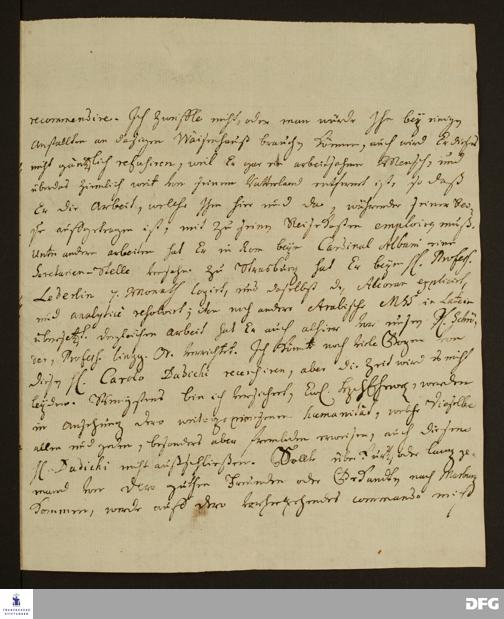 recommendire. Ich zweiffle nicht, oder man würde Ihn bey einigen
Anstallten am dasigen Waisenhauß brauchen können, auch wird Er dieses
nicht gäntzlich refusiren, weil Er gar ein arbeitsahmer Mensch, und
überdas ziemlich weit von seinem Vatterland entfernet ist, so daß
Er die Arbeit, welche Ihm hier und da, währender seiner Rei-
se aufgetragen ist, mit zu seinen Reisekosten employren muß.
Unter andern arbeiten hat Er in Rom beym Cardinal Albani eine
Secretarien-Stelle versehen. Zu Strasburg hat Er beym H. Profess.
Lederlin 7. Monath logirt, und daselbst den Alcoran explicirt,
und analytice resolvirt; den noch andere Arabische MSS in Latein
übersetzt. dergleichen Arbeit hat Er auch alhier bey unserm H. Schrö-
der, Profess. Lingg. Or. verrichtet. Ich könnte noch viele Sachen von
diesem H. Carolo Dadichi recensiren, aber die Zeit wird es nicht
leyden. Wenigstens bin ich versichert, Ew. HochEhrw. werden
in Ansehung dero weitgepriesenen humanität, welche Dieselbe
allen und jeden, besonders aber fremden erweisen, auch diesen
H. Dadichi nicht außschließen. Sollte über kurtz oder lang je-
mand von Dero guthen Freunden oder Bekandten nach Marburg
kommen, werde auf dero vorhergehendes commando mich
FRANCKESCHE STIFTUNGEN
DFG